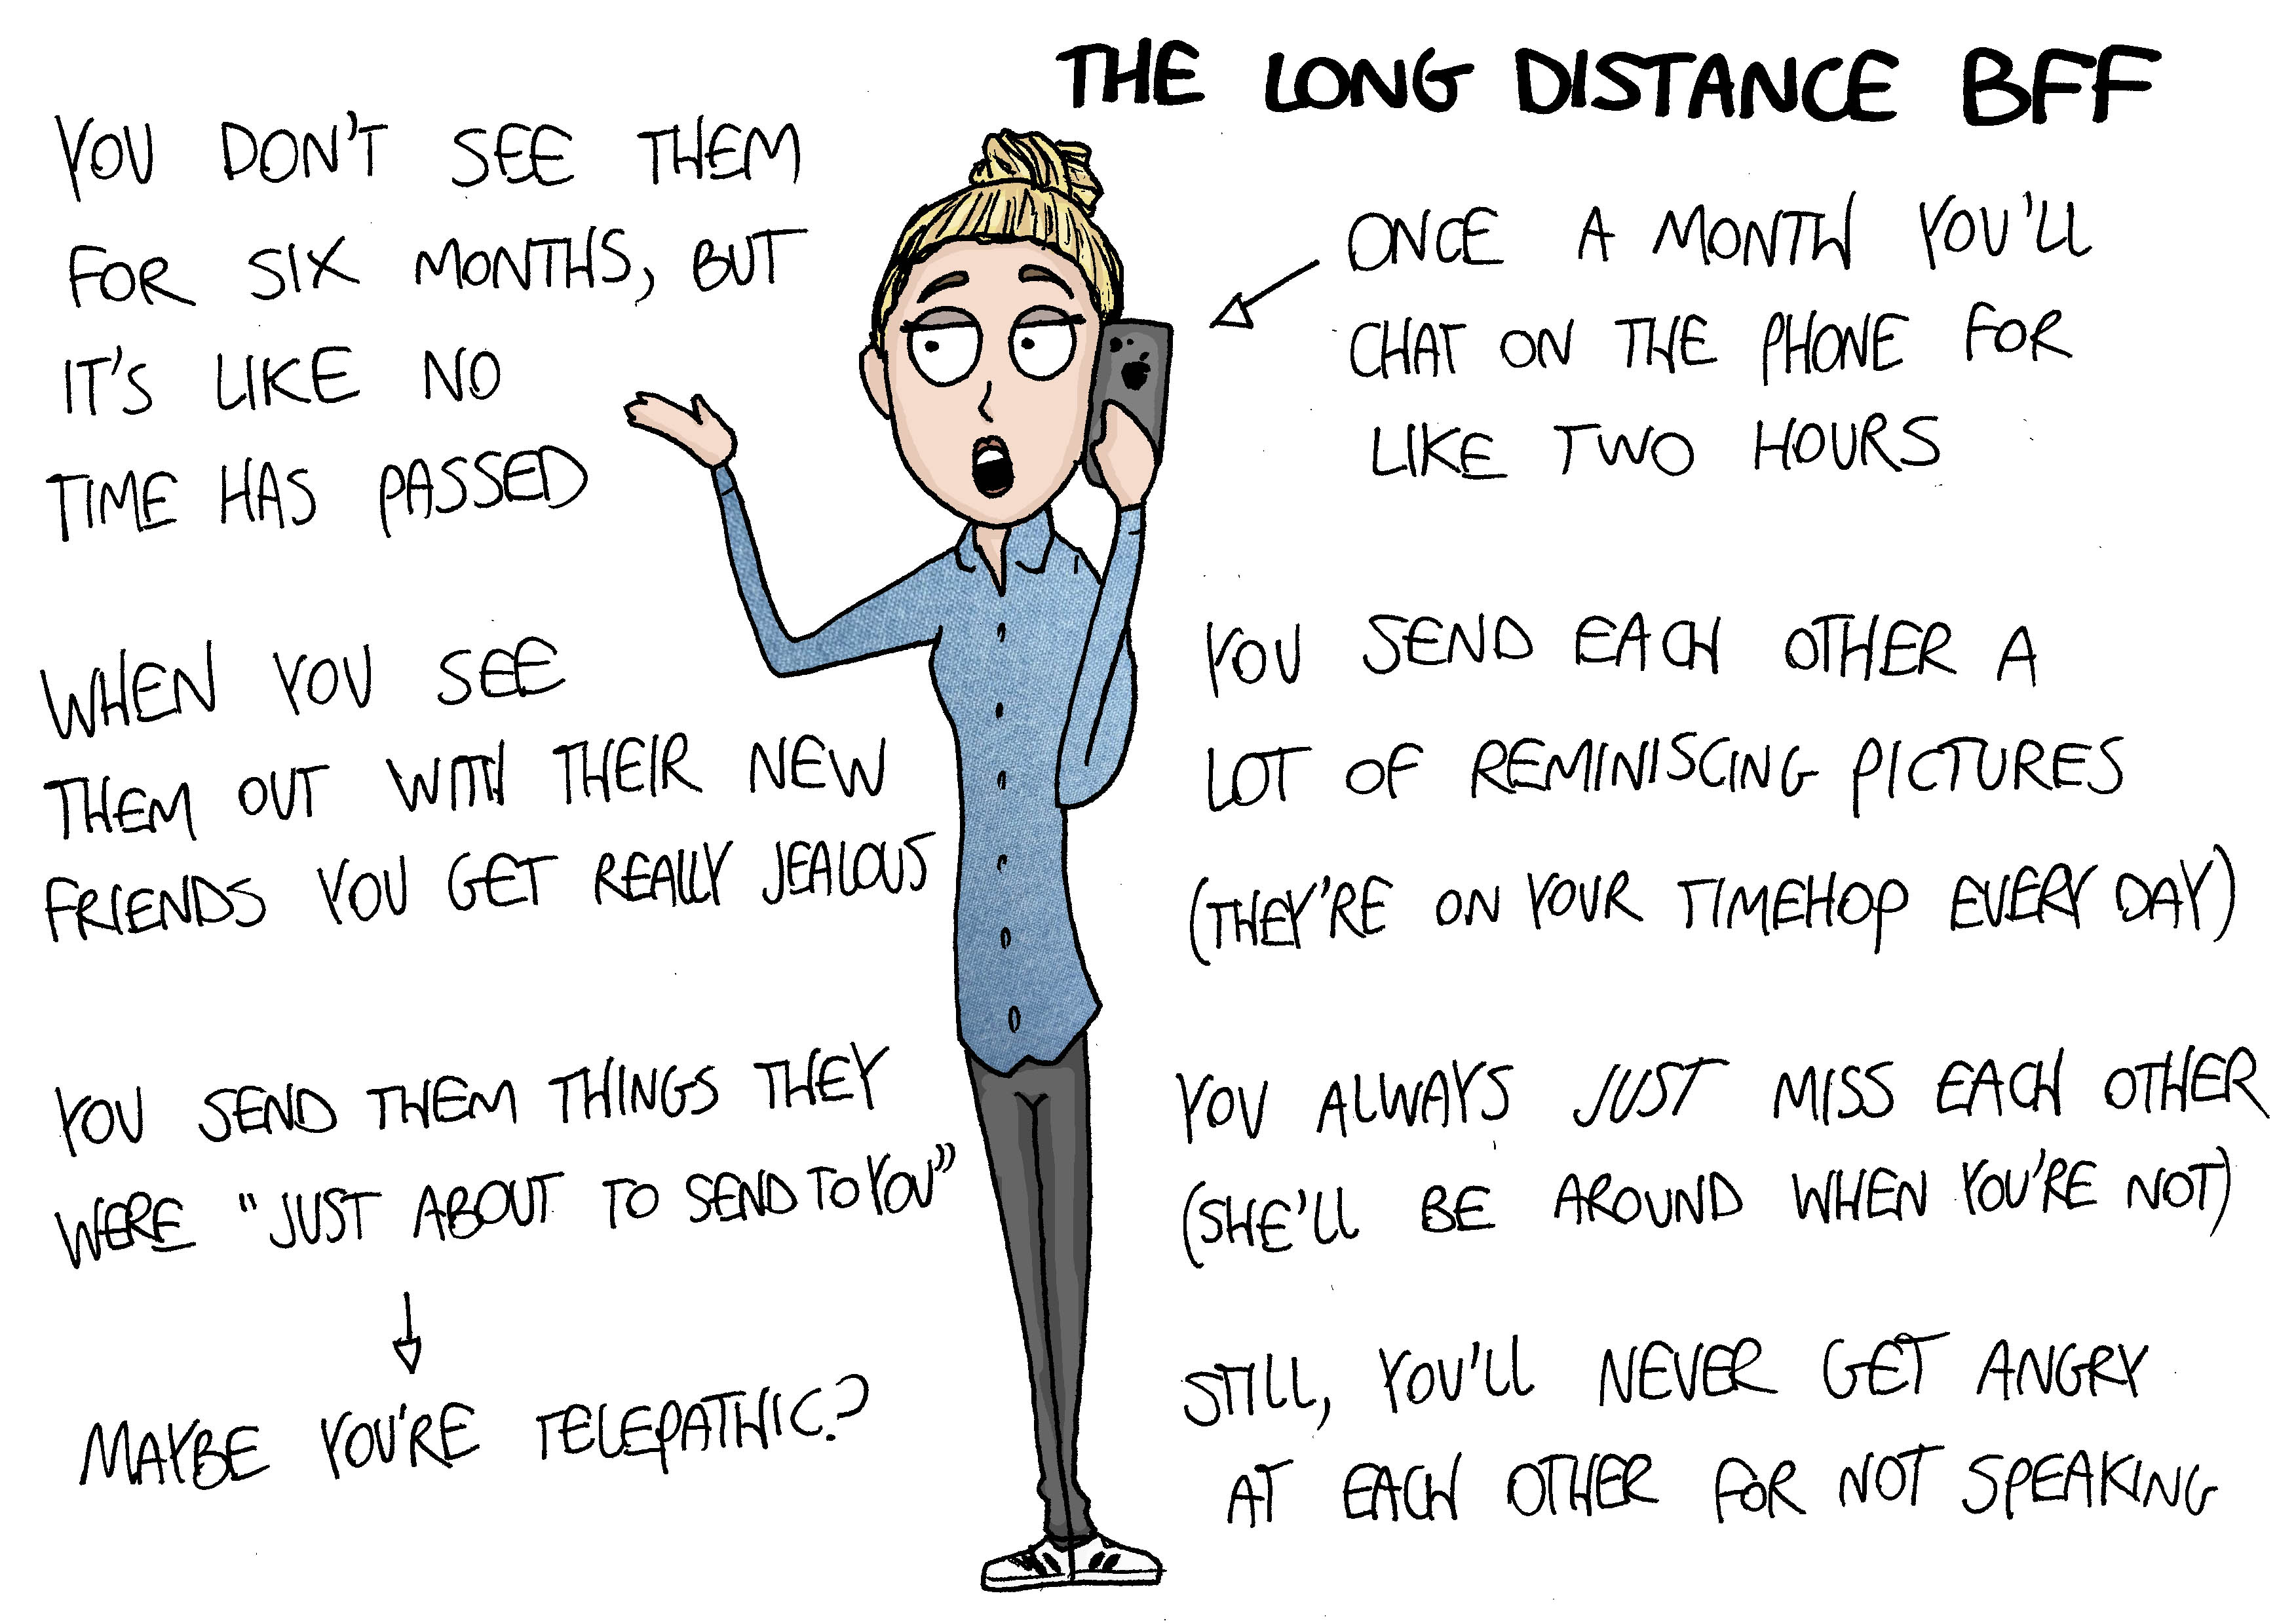 THE LONG DISTANCE BFF
YOU DON'T SEE THEM
FOR SIX MONTHS, BUT
IT'S LIKE NO
TIME HAS PASSED
WHEN YOU SEE
THEM OUT WITH THEIR NEW
FRIENDS YOU GET REALLY JEALOUS
YOU SEND THEM THINGS THEY
WERE "JUST ABOUT TO SEND TO YOU"
MAYBE YOU'RE TELEPATHIC?
ONCE A MONTH YOU'LL
CHAT ON THE PHONE FOR
LIKE TWO HOURS
YOU SEND EACH OTHER A
LOT OF REMINISCING PICTURES
(THEY'RE ON YOUR TIMEHOP EVERY DAY)
YOU ALWAYS JUST MISS EACH OTHER
(SHE'LL BE AROUND WHEN YOU'RE NOT)
STILL, YOU'LL NEVER GET ANGRY
AT EACH OTHER FOR NOT SPEAKING